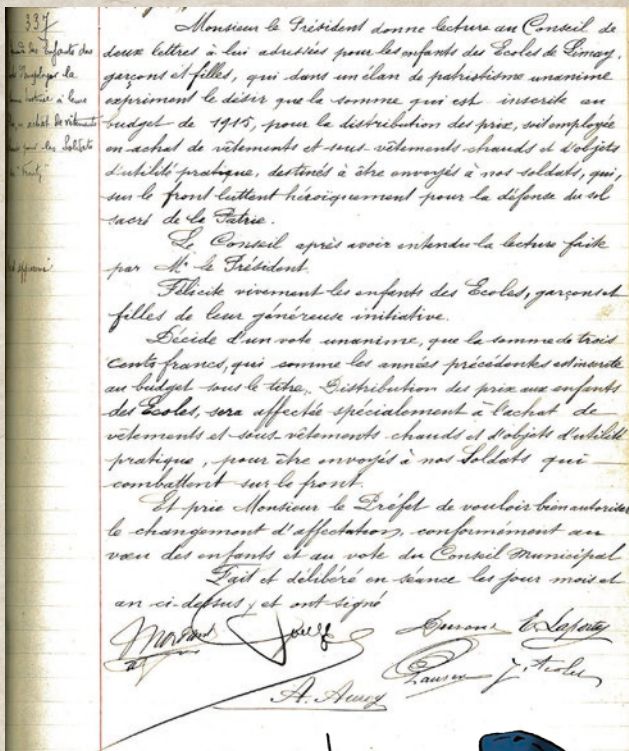 337
Monsieur le Président donne lecture au Conseil de
deux lettres à lui adressées pour les enfants des Ecoles de Limay,
garçons et filles, qui dans un élan de patriotisme unanime
expriment le désir que la somme qui est inscrite au
budget de 1915, pour la distribution des prix, soit employée
en achat de vêtements et sous-vêtements chauds et d'objets
d'utilité pratique, destinés à être envoyés à nos soldats, qui,
sur le front luttent héroïquement pour la défense du sol
sacré de la Patrie.
Le Conseil après avoir entendu la lecture faite
par Mr le Président.
Félicite vivement les enfants des Ecoles, garçons et
filles de leur généreuse initiative.
Décide d'un vote unanime, que la somme de trois
cents francs, qui comme les années précédentes est inscrite
au budget sous le titre, Distribution des prix aux enfants
des Ecoles, sera affectée spécialement à l'achat de
vêtements et sous-vêtements chauds et d'objets d'utilité
pratique, pour être envoyés à nos Soldats qui
combattent sur le front.
Et prie Monsieur le Préfet de vouloir bien autoriser
le changement d'affectation, conformément au
vœu des enfants et au vote du Conseil Municipal
Fait et délibéré en séance les jour mois et
an ci-dessus, et ont signé
des Enfants des
la
à leur
achat de vêtements
pour les Soldats
E. Laporte
A. Auroy